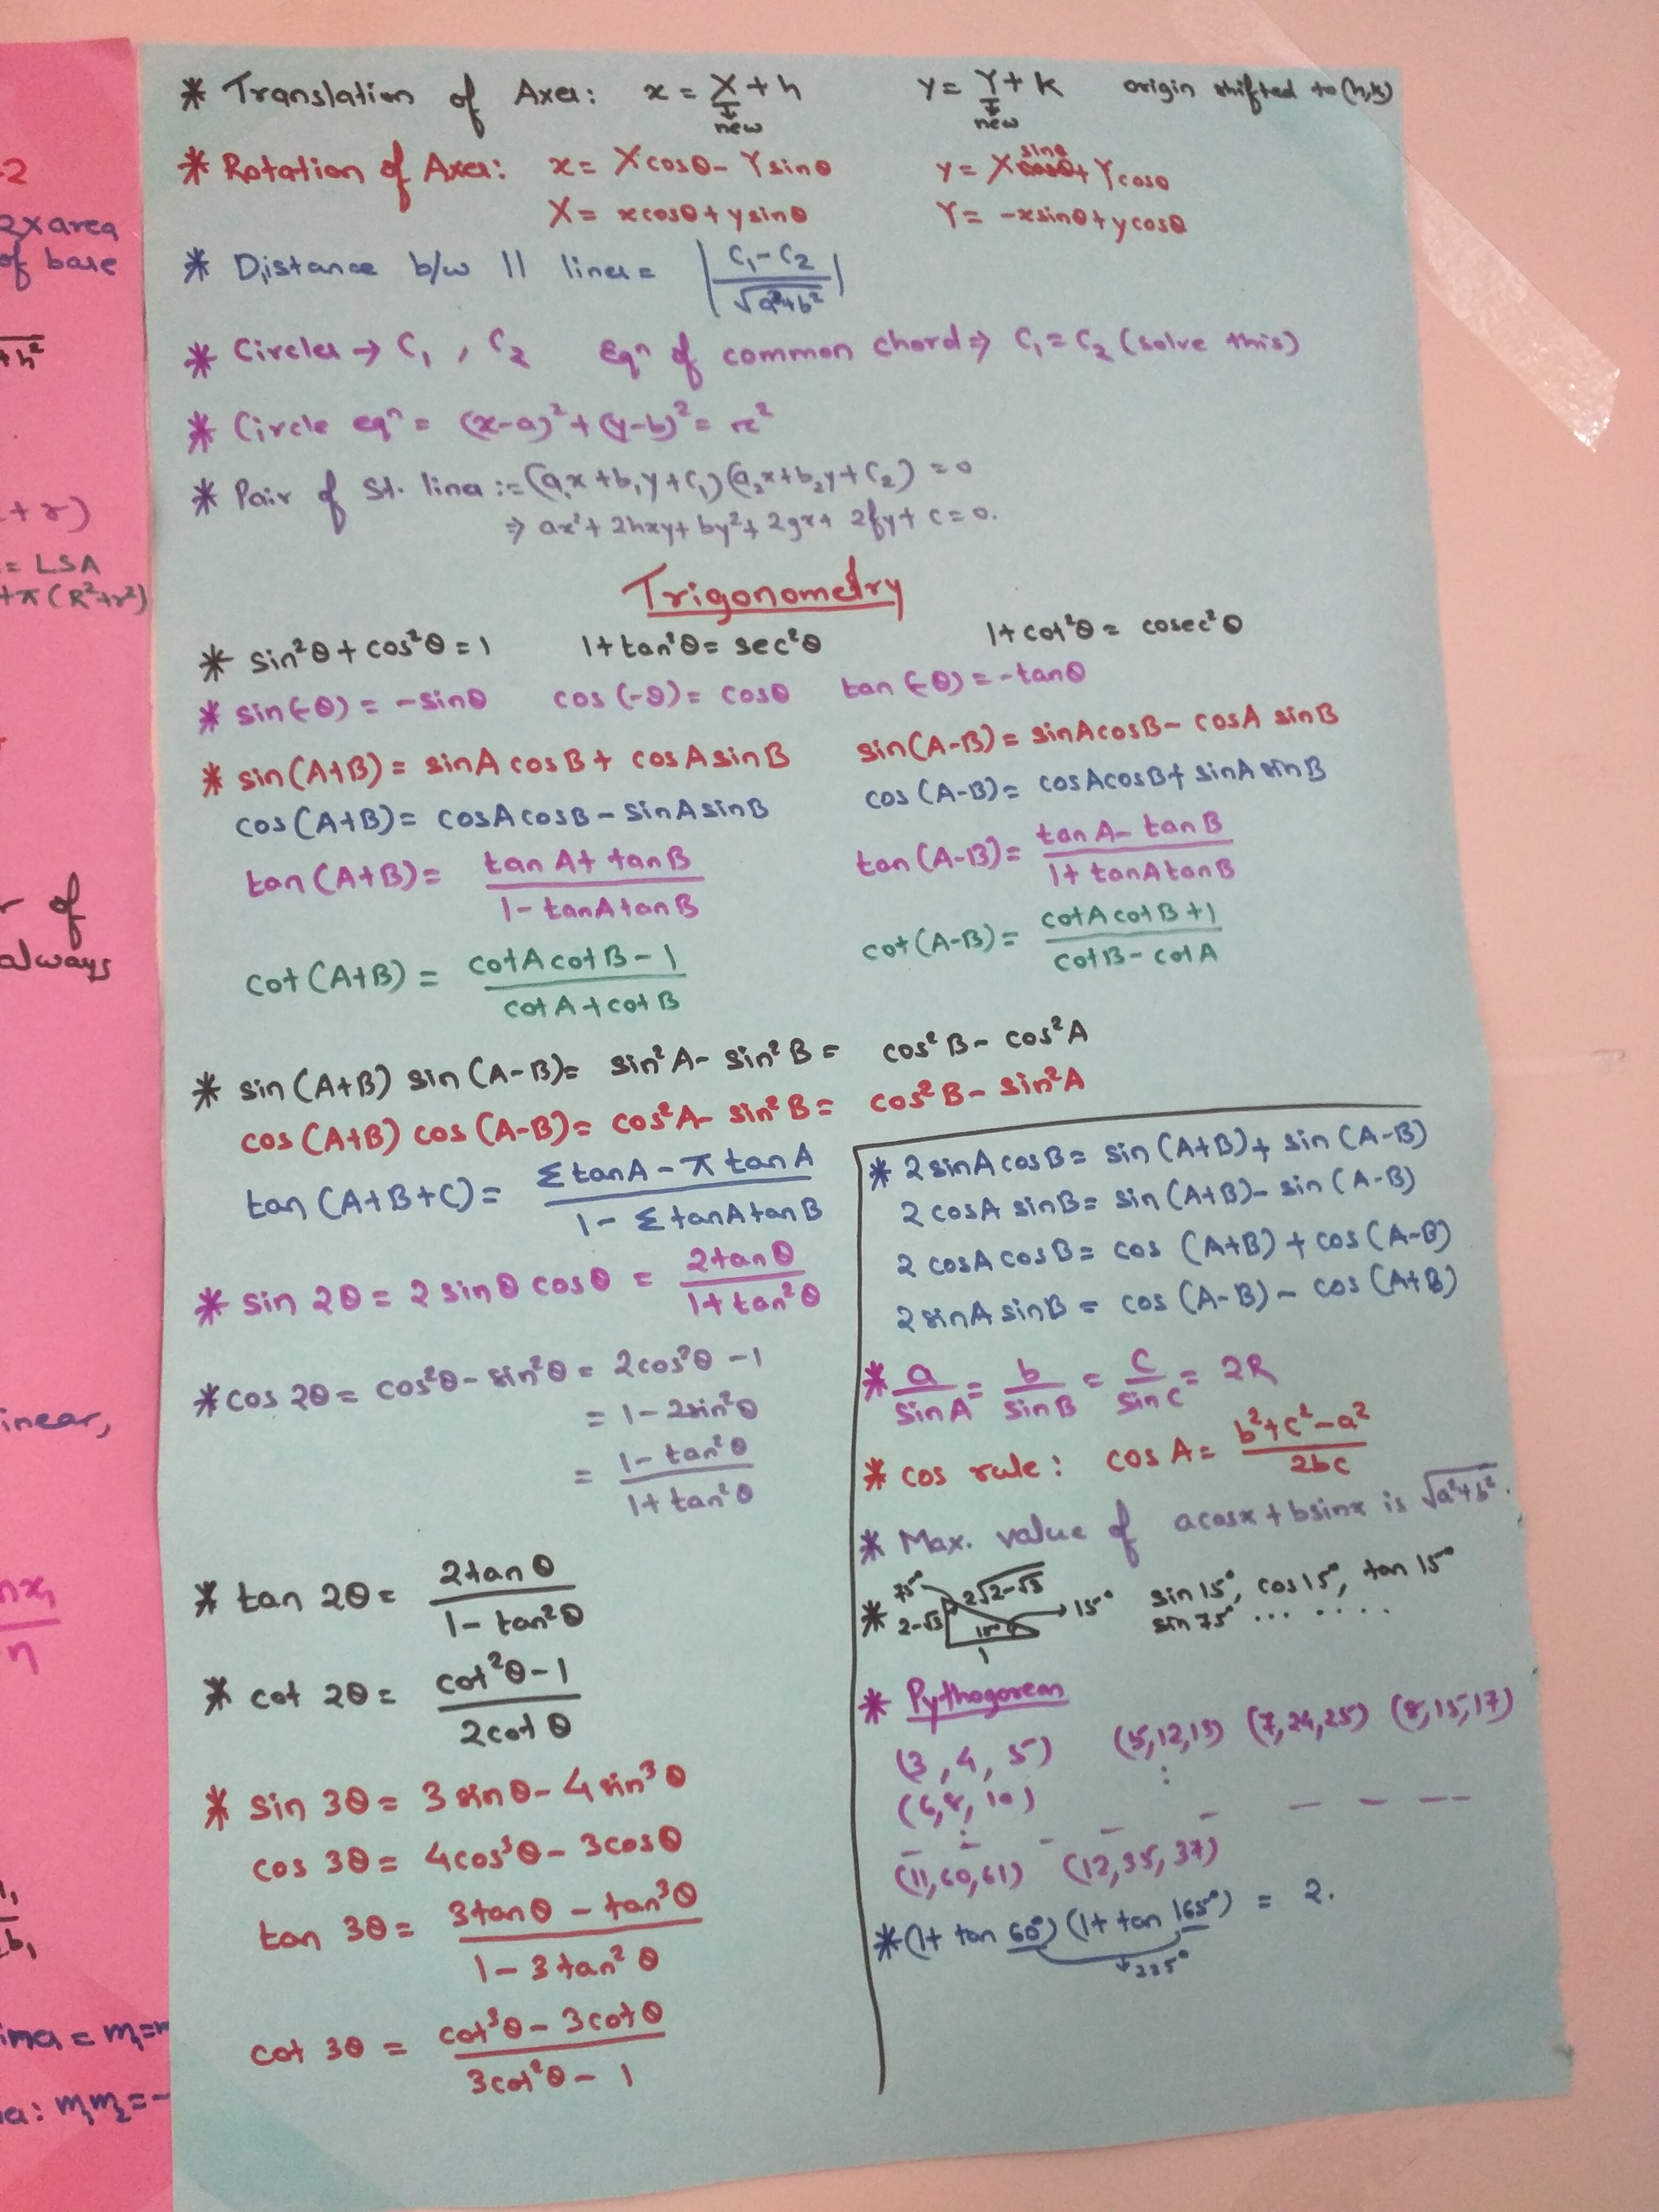 * Translation of Axes: x = X + h y = Y + k origin shifted to (h,k)
new new
* Rotation of Axes: x = Xcosθ - Ysinθ y = Xsinθ + Ycosθ
X = xcosθ + ysinθ Y = -xsinθ + ycosθ
* Distance b/w || lines = |(C₁ - C₂)/√(a²+b²)|
* Circles → C₁, C₂ Eqⁿ of common chord ⇒ C₁ = C₂ (solve this)
* Circle eqⁿ = (x-a)² + (y-b)² = r²
* Pair of St. lines := (a₁x + b₁y + C₁)(a₂x + b₂y + C₂) = 0
⇒ ax² + 2hxy + by² + 2gx + 2fy + c = 0.
Trigonometry
* sin²θ + cos²θ = 1 1 + tan²θ = sec²θ 1 + cot²θ = cosec²θ
* sin(-θ) = -sinθ cos(-θ) = cosθ tan(-θ) = -tanθ
* sin(A+B) = sinA cosB + cosA sinB sin(A-B) = sinAcosB - cosA sinB
cos(A+B) = cosAcosB - sinAsinB cos(A-B) = cosAcosB + sinA sinB
tan(A+B) = (tanA + tanB)/(1 - tanAtanB) tan(A-B) = (tanA - tanB)/(1 + tanAtanB)
cot(A+B) = (cotAcotB - 1)/(cotA + cotB) cot(A-B) = (cotAcotB + 1)/(cotB - cotA)
* sin(A+B) sin(A-B) = sin²A - sin²B = cos²B - cos²A
cos(A+B) cos(A-B) = cos²A - sin²B = cos²B - sin²A
tan(A+B+C) = (ΣtanA - π tanA)/(1 - ΣtanAtanB)
* sin 2θ = 2 sinθ cosθ = 2tanθ/(1 + tan²θ)
* cos 2θ = cos²θ - sin²θ = 2cos²θ - 1
= 1 - 2sin²θ
= (1 - tan²θ)/(1 + tan²θ)
* tan 2θ = 2tanθ/(1 - tan²θ)
* cot 2θ = (cot²θ - 1)/(2cotθ)
* sin 3θ = 3 sinθ - 4 sin³θ
cos 3θ = 4cos³θ - 3cosθ
tan 3θ = (3tanθ - tan³θ)/(1 - 3tan²θ)
cot 3θ = (cot³θ - 3cotθ)/(3cot²θ - 1)
* 2 sinA cosB = sin(A+B) + sin(A-B)
2 cosA sinB = sin(A+B) - sin(A-B)
2 cosA cosB = cos (A+B) + cos(A-B)
2 sinA sinB = cos (A-B) - cos(A+B)
* a/sinA = b/sinB = c/sinC = 2R
* cos rule: cos A = (b² + c² - a²)/2bc
* Max. value of acosx + bsinx is √(a²+b²).
* 75° 2√(2-√3) 2-√3 15° → 15° 1 sin 15°, cos 15°, tan 15°
sin 75° ... ....
* Pythogorean
(3, 4, 5) (5,12,13) (7,24,25) (8,15,17)
(6,8,10)
(11,60,61) (12,35,37)
* (1 + tan 60°)(1 + tan 165°) = 2.
↓225°
-2
2x area
of base
+h²
+r)
= LSA
+π(R²+r²)
of
always
inear,
nx₁
n
b₁
m₁=m
: m₁m₂ = -